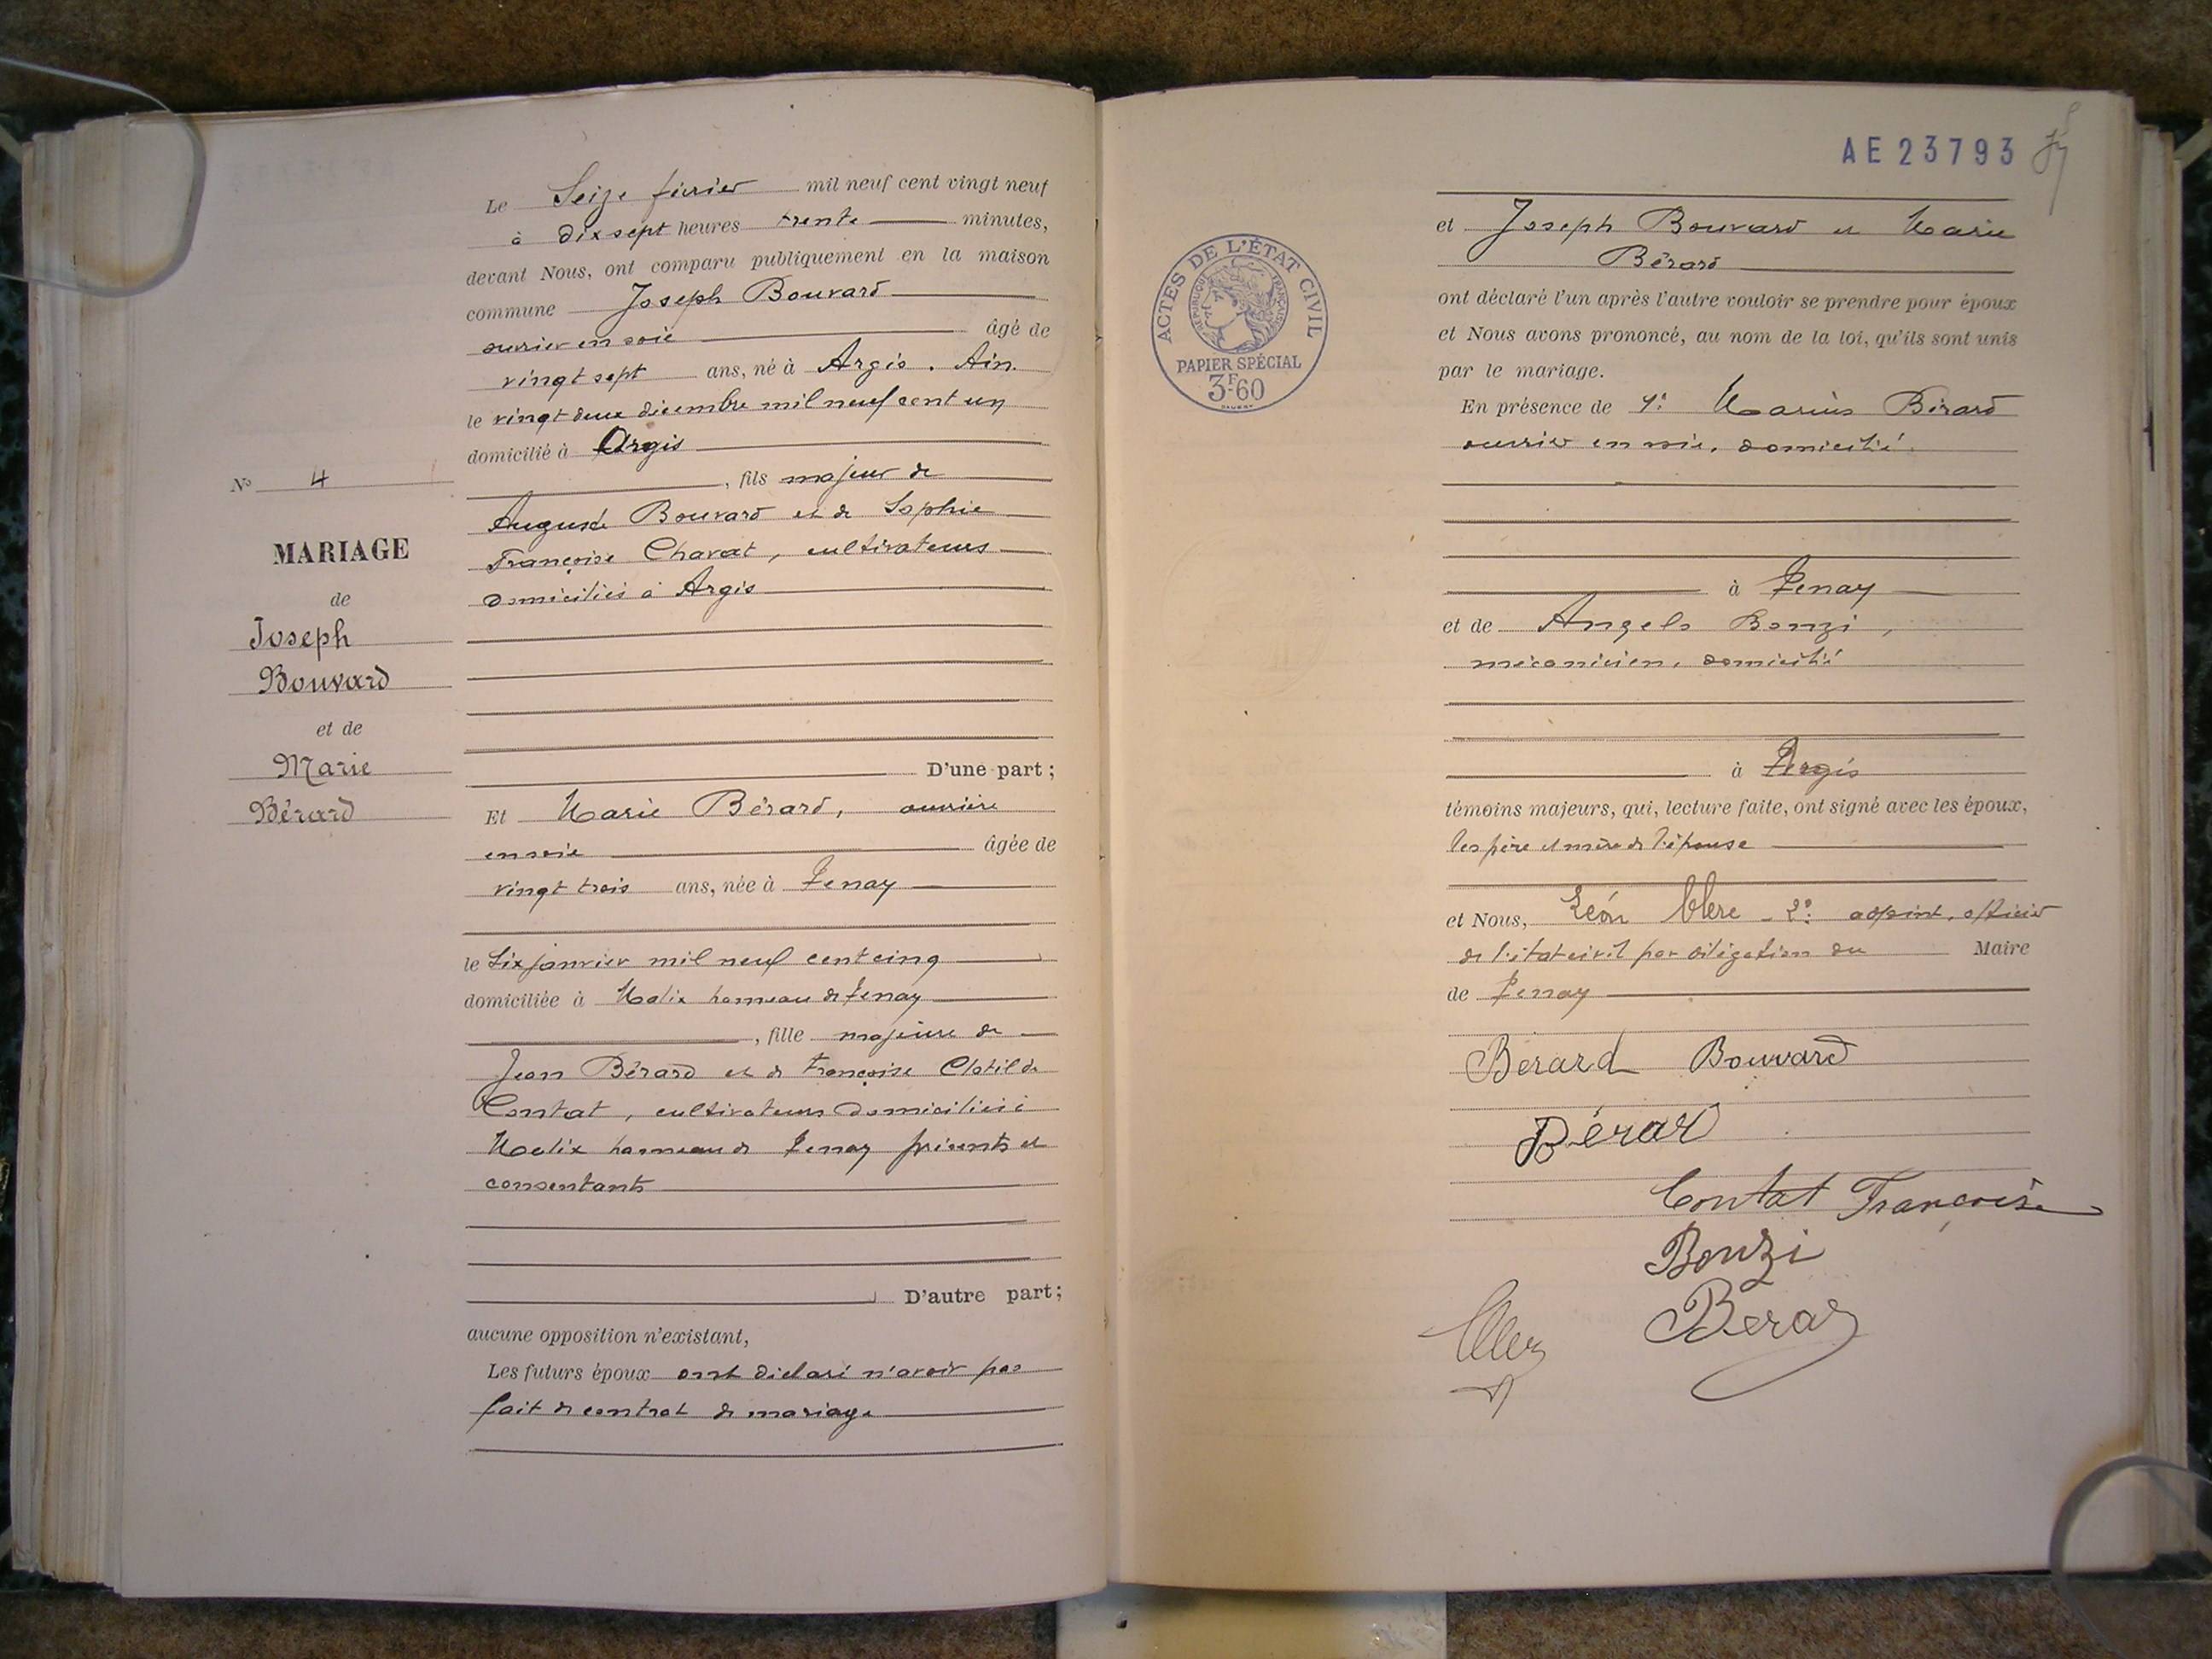 Le Seize février mil neuf cent vingt neuf
à dix sept heures trente minutes,
devant Nous, ont comparu publiquement en la maison
commune Joseph Bouvard
ouvrier en soie âgé de
vingt sept ans, né à Argis. Ain.
le vingt deux décembre mil neuf cent un
domicilié à Argis
, fils majeur de
Auguste Bouvard et de Sophie
Françoise Charvat, cultivateurs
domiciliés à Argis
D'une part;
Et Marie Bérard, ouvrière
en soie âgée de
vingt trois ans, née à Tenay
le Six janvier mil neuf cent cinq
domiciliée à Malix hameau de Tenay
, fille majeure de
Jean Bérard et de Françoise Clotilde
Contat, cultivateurs domiciliés à
Malix hameau de Tenay présents et
consentants
D'autre part;
aucune opposition n'existant,
Les futurs époux ont déclaré n'avoir pas
fait de contrat de mariage
No 4
MARIAGE
de
Joseph
Bouvard
et de
Marie
Bérard
AE23793
ACTES DE L'ÉTAT CIVIL
RÉPUBLIQUE FRANÇAISE
PAPIER SPÉCIAL
3F60
et Joseph Bouvard et Marie
Bérard
ont déclaré l'un après l'autre vouloir se prendre pour époux
et Nous avons prononcé, au nom de la loi, qu'ils sont unis
par le mariage.
En présence de Marius Bérard
ouvrier en soie, domicilié
à Tenay
et de Angelo Bonzi,
mécanicien, domicilié
à Argis
témoins majeurs, qui, lecture faite, ont signé avec les époux,
les père et mère de l'épouse
et Nous, Léon 2e adjoint, officier
de l'état civil par délégation du Maire
de Tenay
Berard Bouvard
Bérard
Contat Françoise
Bonzi
Berard